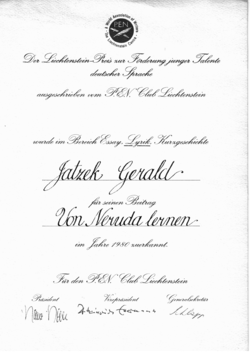 PEN
Der Liechtenstein-Preis zur Förderung junger Talente
deutscher Sprache
ausgeschrieben vom PEN Club Liechtenstein
wurde im Bereich Essay, Lyrik, Kurzgeschichte
Jatzek Gerald
für seinen Beitrag
Von Neruda lernen
im Jahre 1980 zuerkannt.
Für den PEN Club Liechtenstein
Präsident Vizepräsident Generalsekretär